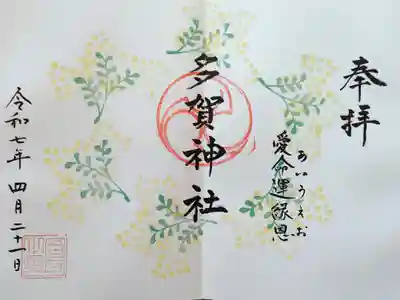 奉拝
あいうえお
愛命運縁恩
多賀神社
令和七年 四月二十一日